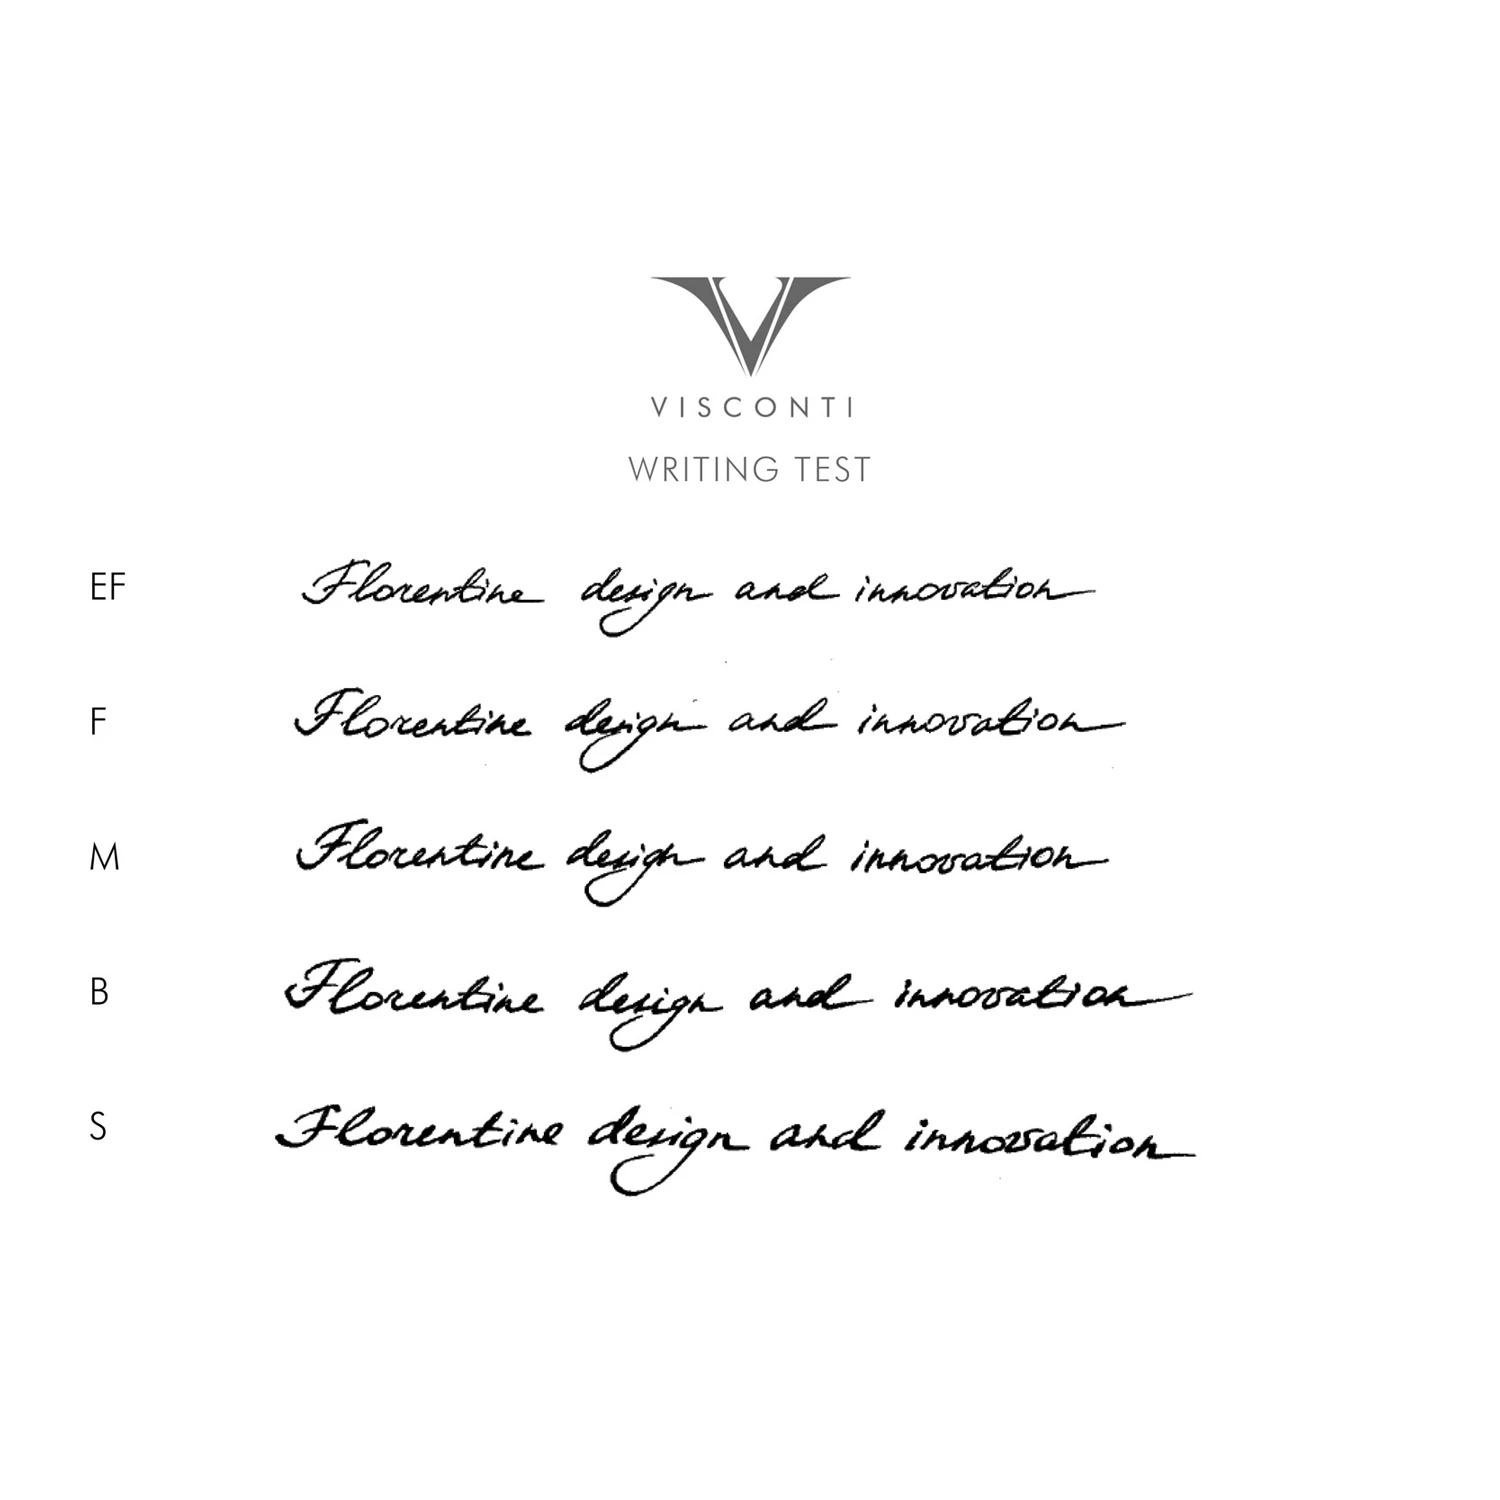 VISCONTI
WRITING TEST
EF Florentine design and innovation
F Florentine design and innovation
M Florentine design and innovation
B Florentine design and innovation
S Florentine design and innovation